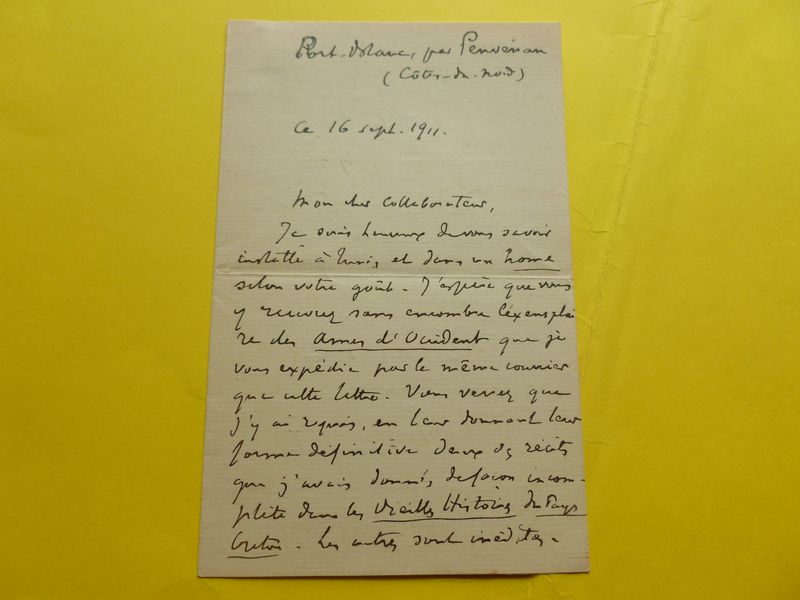 Port-Blanc, par Penvénan
(Côtes-du-Nord)
Ce 16 sept. 1911.
Mon cher collaborateur,
Je suis heureux de vous savoir
installé à Tunis, et dans un home
selon votre goût. J'espère que vous
y recevrez sans encombre l'exemplai
re des Âmes d'Occident que je
vous expédie par le même courrier
que cette lettre. Vous verrez que
j'y ai repris, en leur donnant leur
forme définitive deux des récits
que j'avais donnés de façon incom-
plète dans les Vieilles Histoires du Pays
breton. Les autres sont inédites.